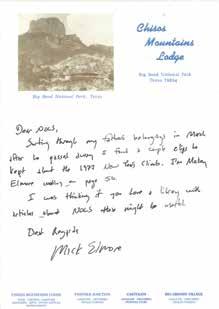 Chisos
Mountains
Lodge
Big Bend National Park
Texas 79834
Big Bend National Park, Texas
Dear NOLS,
Sorting through my fathers belongings in March
after he passed away I found a couple clips he
kept about the 1977 New Years Climb. I'm Makay
Elmore walking on page 50.
I was thinking if you have a library with
articles about NOLS this might be useful.
Best Regards
Mick Elmore
CHISOS MOUNTAINS LODGE
PANTHER JUNCTION
CASTOLON
RIO GRANDE VILLAGE